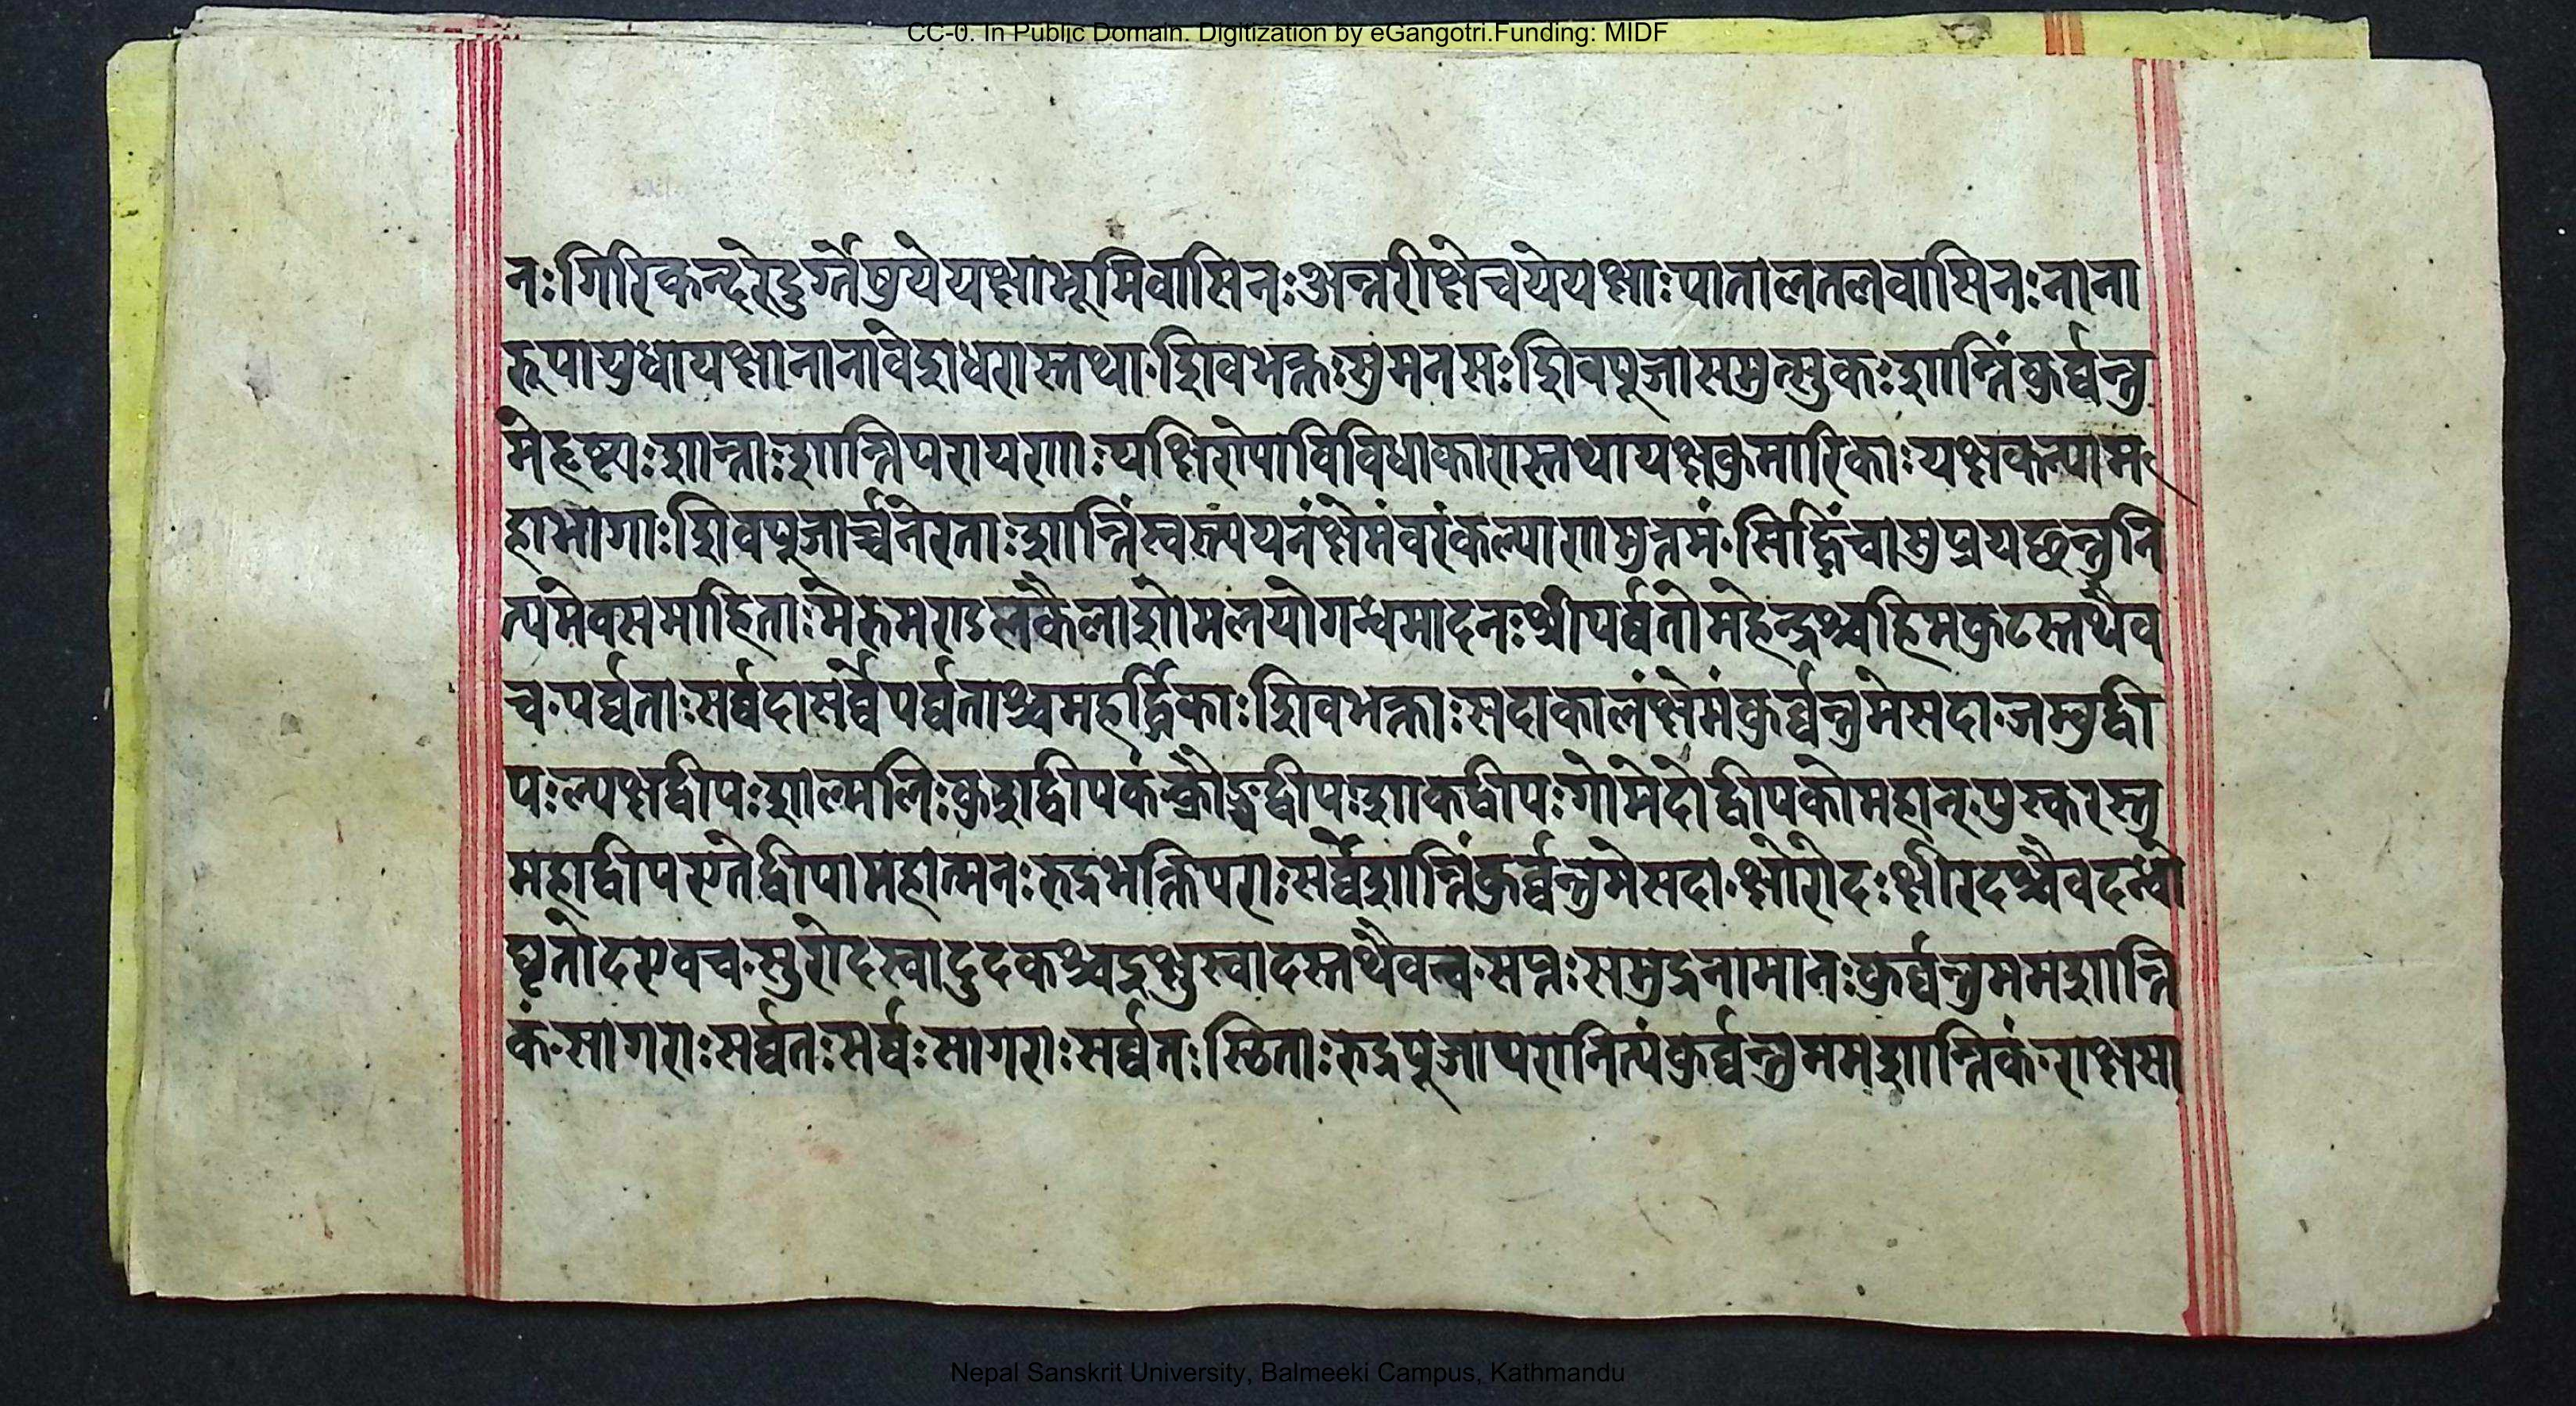 CC-0. In Public Domain. Digitization by eGangotri.Funding: MIDF
नःगिरिकन्दरेदुर्ग्गेषुयेयक्षाभूमिवासिनःअन्तरीक्षेचयेयक्षाःपातालतलवासिनःनाना
रूपायुधायक्षानानावेशधरास्तथा·शिवभक्तःसुमनसःशिवपूजासमुत्सुकःशान्तिंकुर्व्वन्तु
मेहृष्टाःशान्ताःशान्तिपरायणाःयक्षिणेपाविविधाकारास्तथायक्षकुमारिकाःयक्षकन्याम
हाभागाःशिवपूजार्च्चनेरताःशान्तिंस्वस्त्ययनंक्षेमंवरंकल्याणमुत्तमं·सिद्धिंचाशुप्रयछन्तुनि
त्यमेवसमाहिताःमेरुमराऽलकैलाशोमलयोगन्धमादनःश्रीपर्व्वतोमहेन्द्रश्चहिमकुटस्तथैव
च·पर्व्वताःसर्व्वदासर्व्वेपर्व्वताश्चमहर्द्धिकाःशिवभक्ताःसदाकालंक्षेमंकुर्व्वन्तुमेसदा·जम्बुद्वी
पःल्पक्षद्वीपःशाल्मलिःकुशद्वीपकंक्रौञ्चद्वीपःशाकद्वीपःगोमेदोद्वीपकोमहान्·पुस्करस्तु
महाद्वीपएतेद्वीपामहात्मनःरुद्रभक्तिपराःसर्व्वेशान्तिंकुर्व्वन्तुमेसदा·क्षोरोदःक्षीरदश्चैवदध्यो
घृतोदएवच·सुरोदस्वादुदकश्चइक्षुस्वादस्तथैवच·सप्तःसमुद्रनामानःकुर्व्वन्तुममशान्ति
कं·सागराःसर्व्वतःसर्व्वःसागराःसर्व्वतःस्थिताःरुद्रपूजापरानित्यंकुर्व्वन्तुममशान्तिकं·राक्षसा
Nepal Sanskrit University, Balmeeki Campus, Kathmandu